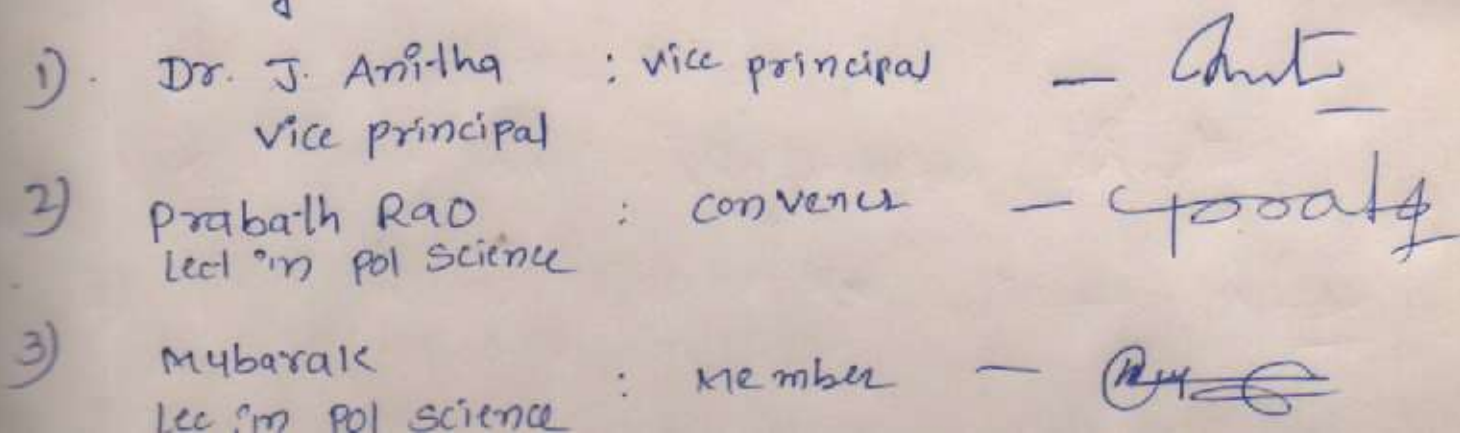 1). Dr. J. Anitha : vice principal —
vice principal
2) Prabath Rao : convener —
Lect in pol science
3) Mubarak : Member —
Lec in pol science